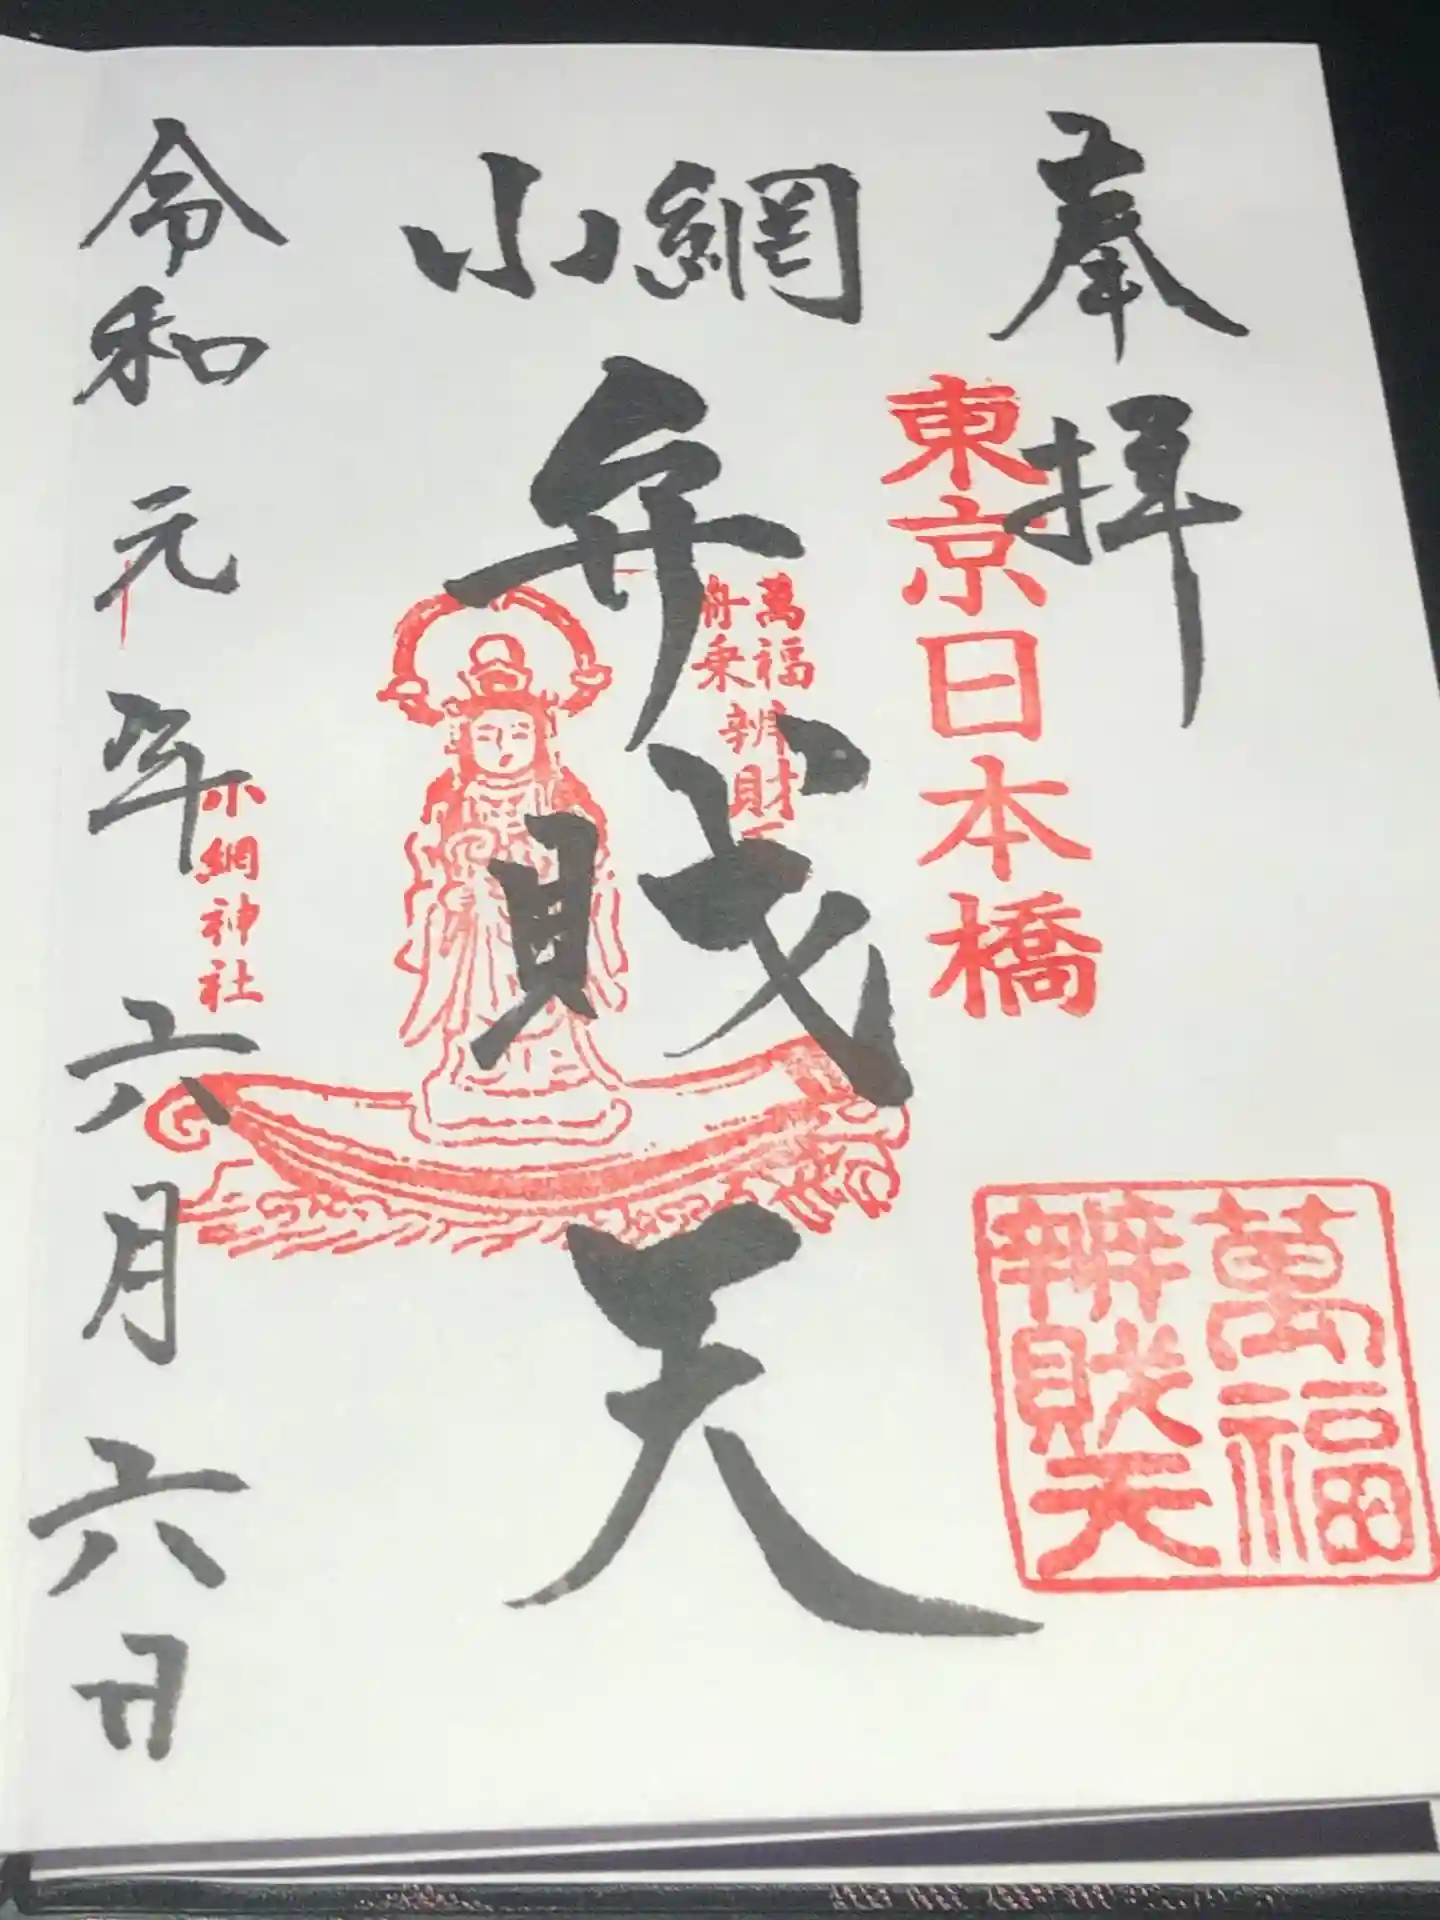 奉拝
東京日本橋
萬福
辨財天
小網
弁財天
萬福
舟乗
辨財天
小網神社
令和元年六月六日